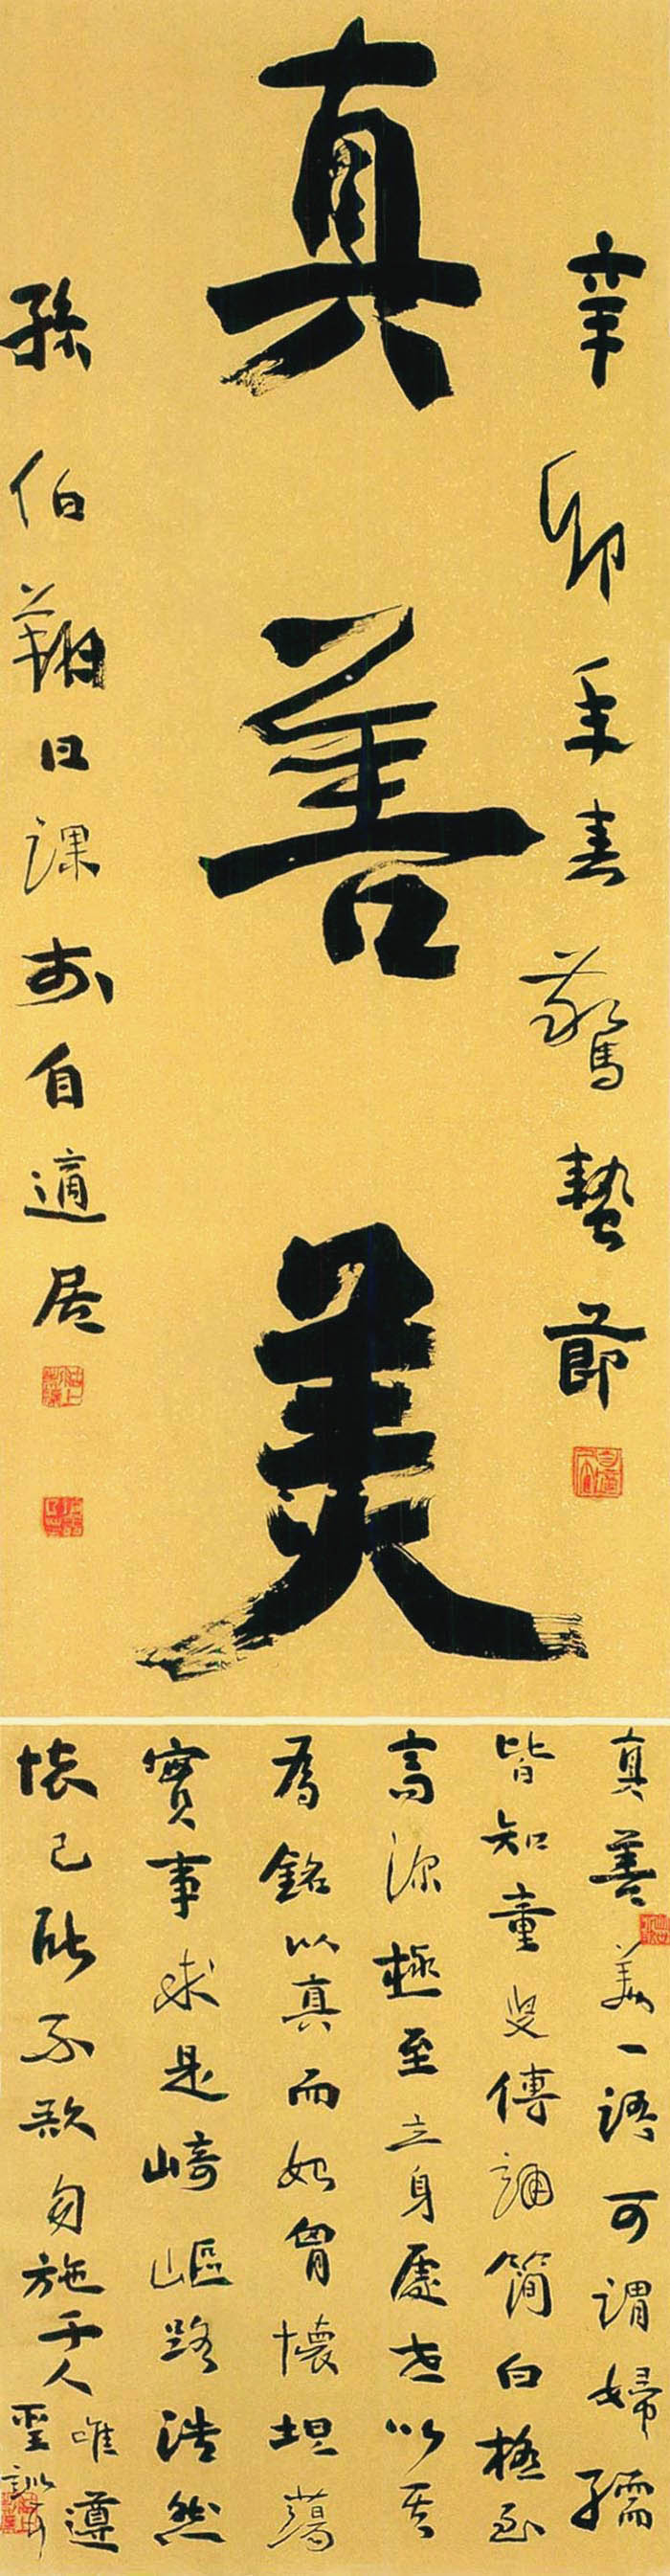 辛卯年春驚蟄節
真善美
孫伯翔日課於自適居
真善美一語可謂婦孺
皆知童叟傳誦簡白極至
高深極至立身處世以其
為銘以真而始胸懷坦蕩
實事求是崎嶇路浩然
懷己所不欲勿施于人唯遵
聖訓